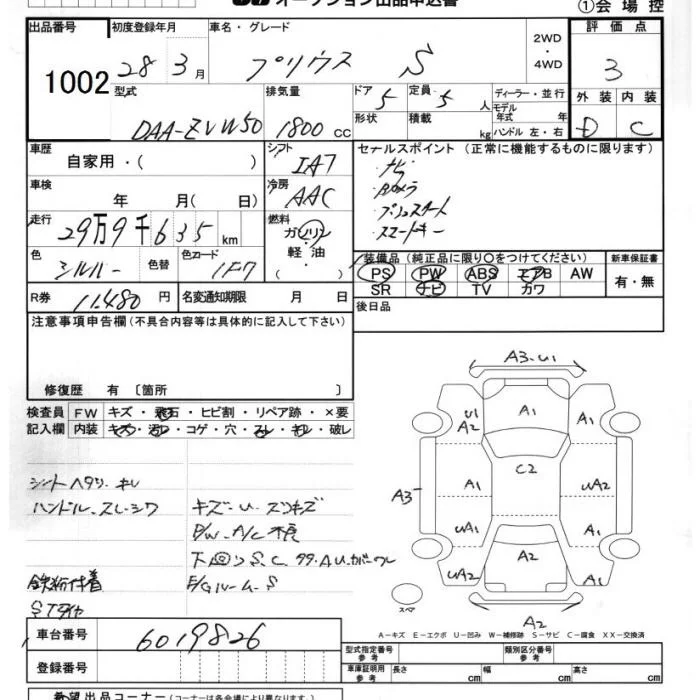 オークション出品申込書
①会場控
出品番号 1002
初度登録年月 28 3月
車名・グレード プリウス S
2WD・4WD
評価点 3
外装 D 内装 C
型式 DAA-ZVW50
排気量 1800 CC
ドア 5
形状
定員 5人
積載 kg
ディーラー・並行
モデル年式 年
ハンドル 左・右
車歴 自家用・( )
シフト IA7
車検 年 月( 日)
冷房 AAC
走行 29万9千635 km
燃料 ガソリン・軽油
色 シルバー 色替 色コード 1F7
R券 11,480円 名変通知期限 月 日
セールスポイント (正常に機能するものに限ります)
・ナビ
・カメラ
・プッシュスタート
・スマートキー
装備品(純正品に限り○をつけてください)
PS PW ABS エアB AW
SR ナビ TV カワ
新車保証書 有・無
後日品
注意事項申告欄(不具合内容等は具体的に記入して下さい)
修復歴 有 〔箇所 〕
検査員記入欄
FW キズ・飛石・ヒビ割・リペア跡・×要
内装 キズ・汚レ・コゲ・穴・スレ・キレ・破レ
シートヘタリ.キレ
ハンドル.スレ.シワ
キズ-U.スリキズ
P/W.A/C不良
下回りS.C
E/Gルーム.S
鉄粉付着
A3.U1
U1
A2
A1
A1
C2
A3
A1
UA2
UA1
A1
UA2
A2
A1
A2
スペア
A-キズ E-エクボ U-凹み W-補修跡 S-サビ C-腐食 XX-交換済
車台番号 6019826
登録番号
型式指定番号 参考
類別区分番号 参考
車庫証明用 参考 長さ cm 幅 cm 高さ cm
出品コーナー(コーナーは各会場により